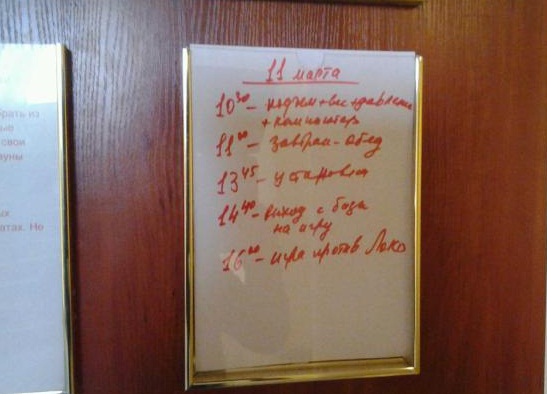 брать из
свои
атах. Но
11 марта
10³⁰ – подъем + вес + давление
+ компьютер
11⁰⁰ – завтрак - обед
13⁴⁵ – установка
14⁴⁰ – выход с база
на игру
16⁰⁰ – игра против Локо